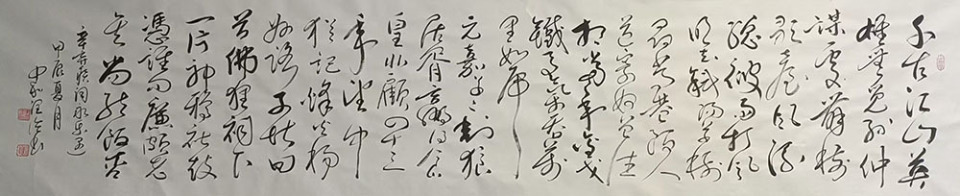 千古江山英
雄無覓孫仲
謀處舞榭
歌臺風流
總被雨打風
吹去斜陽草樹
尋常巷陌人
道寄奴曾住
想當年金戈
鐵馬氣吞萬
里如虎
元嘉草草封狼
居胥贏得倉
皇北顧四十三
年望中
猶記烽火揚
州路可堪回
首佛狸祠下
一片神鴉社鼓
憑誰問廉頗老
矣尚能飯否
辛棄疾詞永遇樂
甲辰夏月